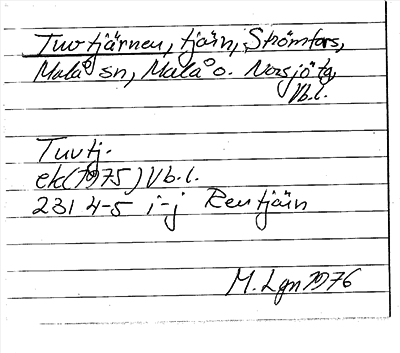 Tuvtjärnen, tjärn, Strömfors,
Malå sn, Malå o. Norsjö tg,
Vb.l.
Tuvtj.
ek(1975) Vb.l.
231 4-5 i-j Rentjärn
M. Lgn 1976